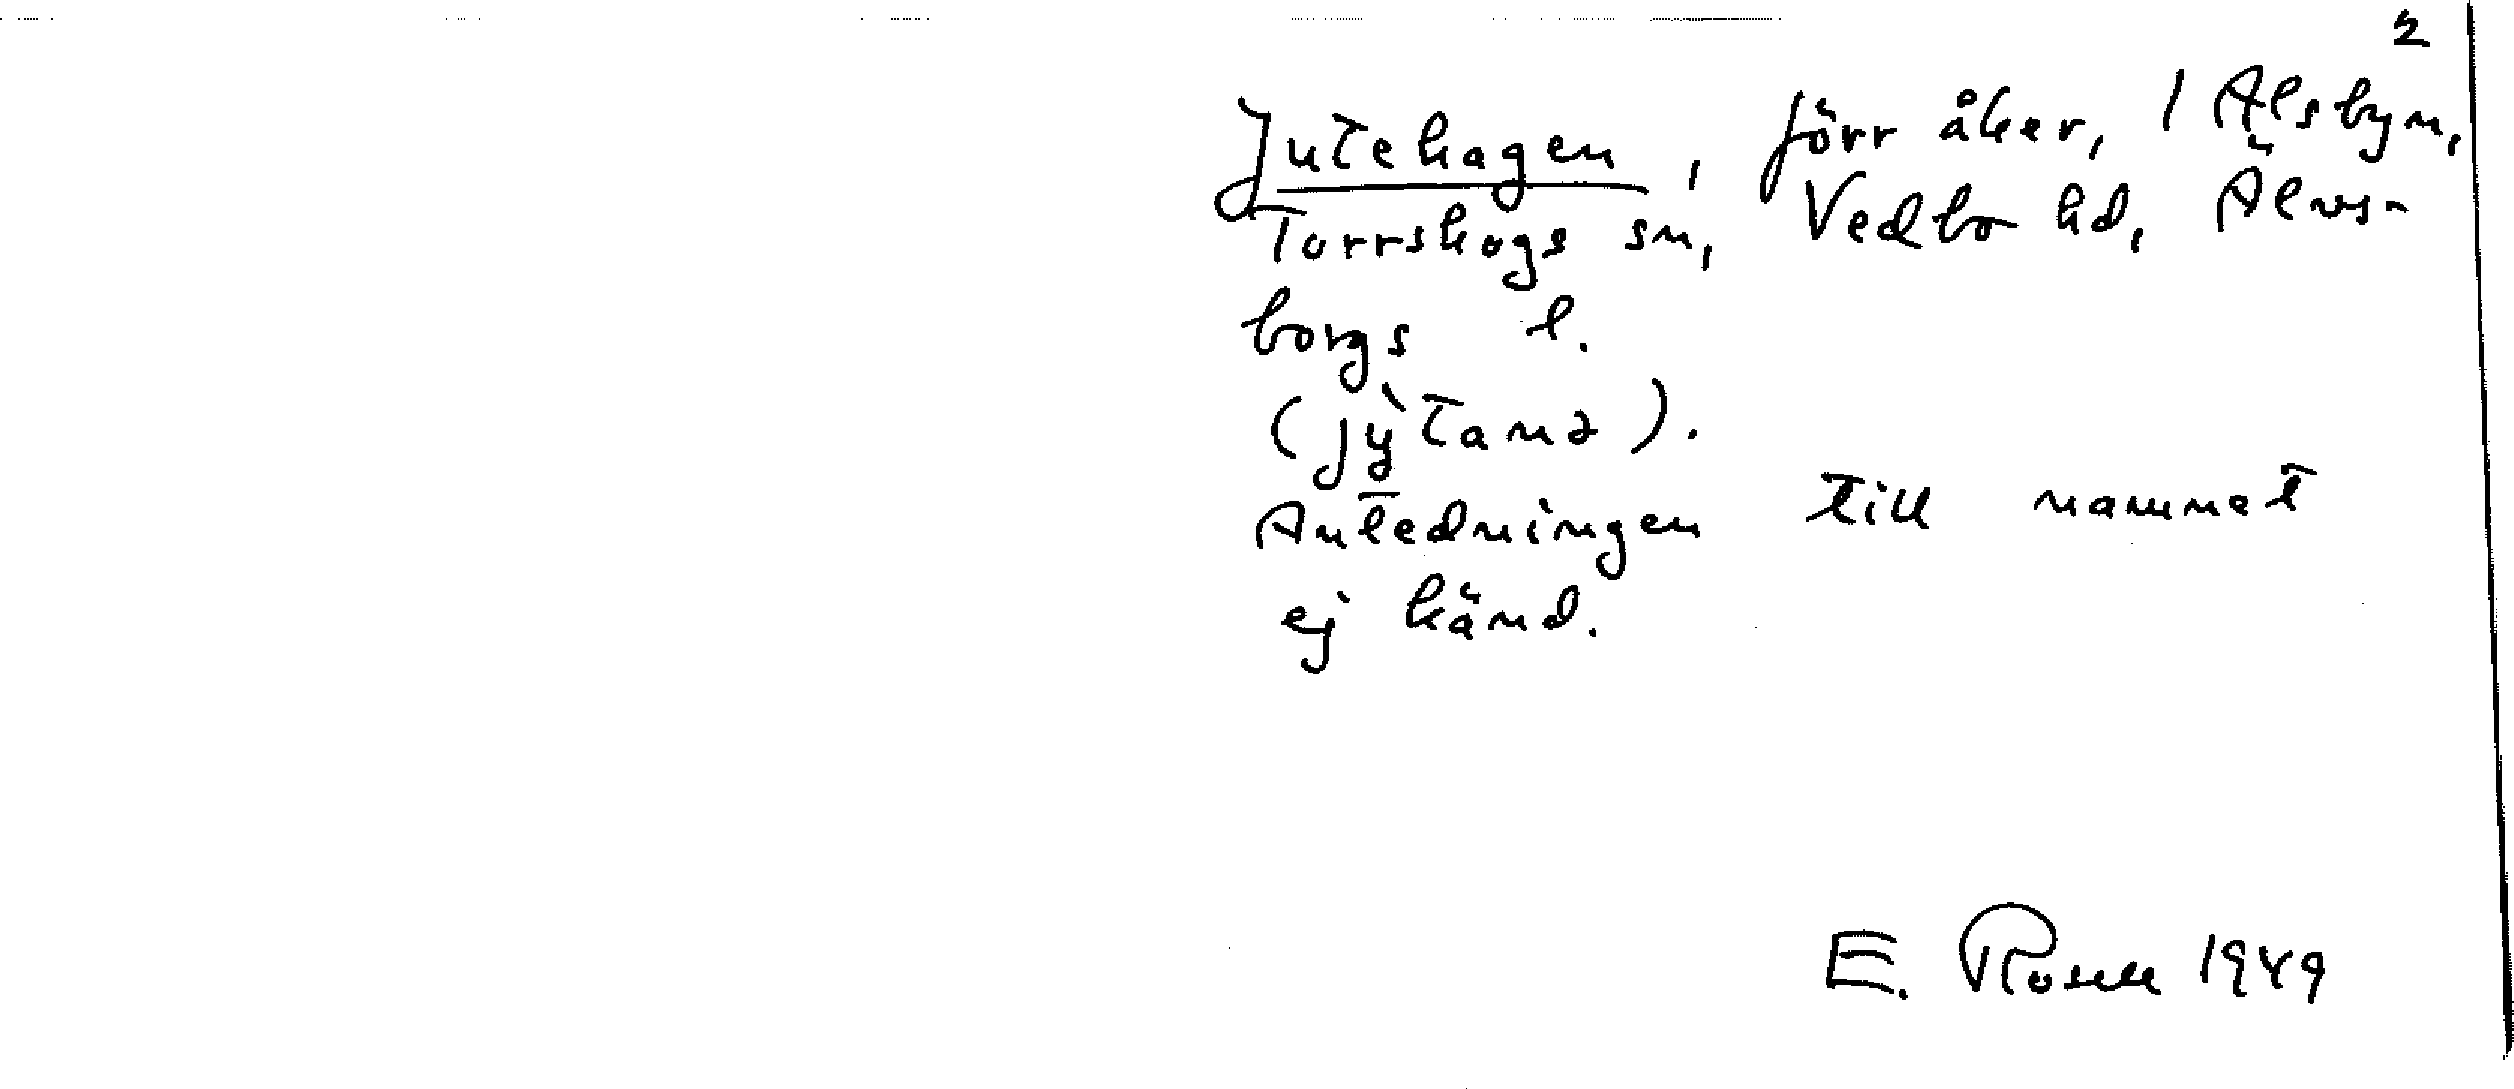 2
Jutehagen, förr åker, 1 Ålsbyn,
Torrskogs sn, Vedbo hd, Älvs-
borgs l.
(jỳtana).
Anledningen till namnet
ej känd.
E. Rosell 1949